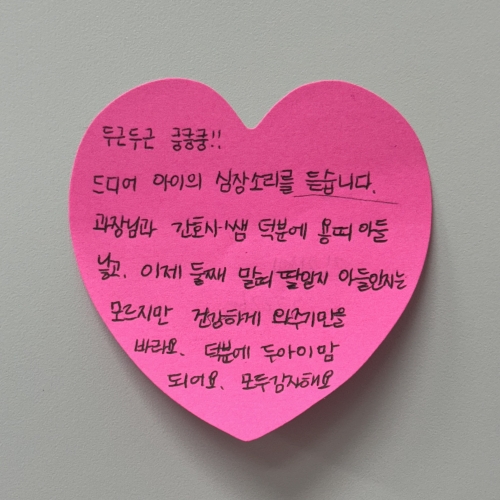 두근두근 쿵쿵쿵!!
드디어 아이의 심장소리를 듣습니다.
과장님과 간호사쌤 덕분에 용띠 아들
낳고. 이제 둘째 말띠 딸일지 아들인지는
모르지만 건강하게 와주기만을
바라요. 덕분에 두아이맘
되어요. 모두감사해요